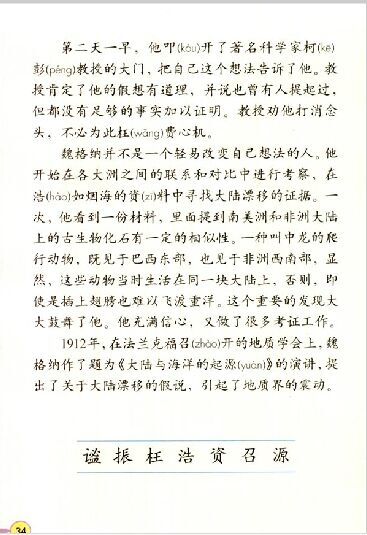 第二天一早，他叩(kòu)开了著名科学家柯(kē)
彭(péng)教授的大门，把自己这个想法告诉了他。教
授肯定了他的假想有道理，并说也曾有人提起过，
但都没有足够的事实加以证明。教授劝他打消念
头，不必为此枉(wǎng)费心机。
魏格纳并不是一个轻易改变自己想法的人。他
开始在各大洲之间的联系和对比中进行考察，在
浩(hào)如烟海的资(zī)料中寻找大陆漂移的证据。一
次，他看到一份材料，里面提到南美洲和非洲大陆
上的古生物化石有一定的相似性。一种叫中龙的爬
行动物，既见于巴西东部，也见于非洲西南部，显
然，这些动物当时生活在同一块大陆上，否则，即
使是插上翅膀也难以飞渡重洋。这个重要的发现大
大鼓舞了他。他充满信心，又做了很多考证工作。
1912年，在法兰克福召(zhào)开的地质学会上，魏
格纳作了题为《大陆与海洋的起源(yuán)》的演讲，提
出了关于大陆漂移的假说，引起了地质界的震动。
谧 振 枉 浩 资 召 源
34